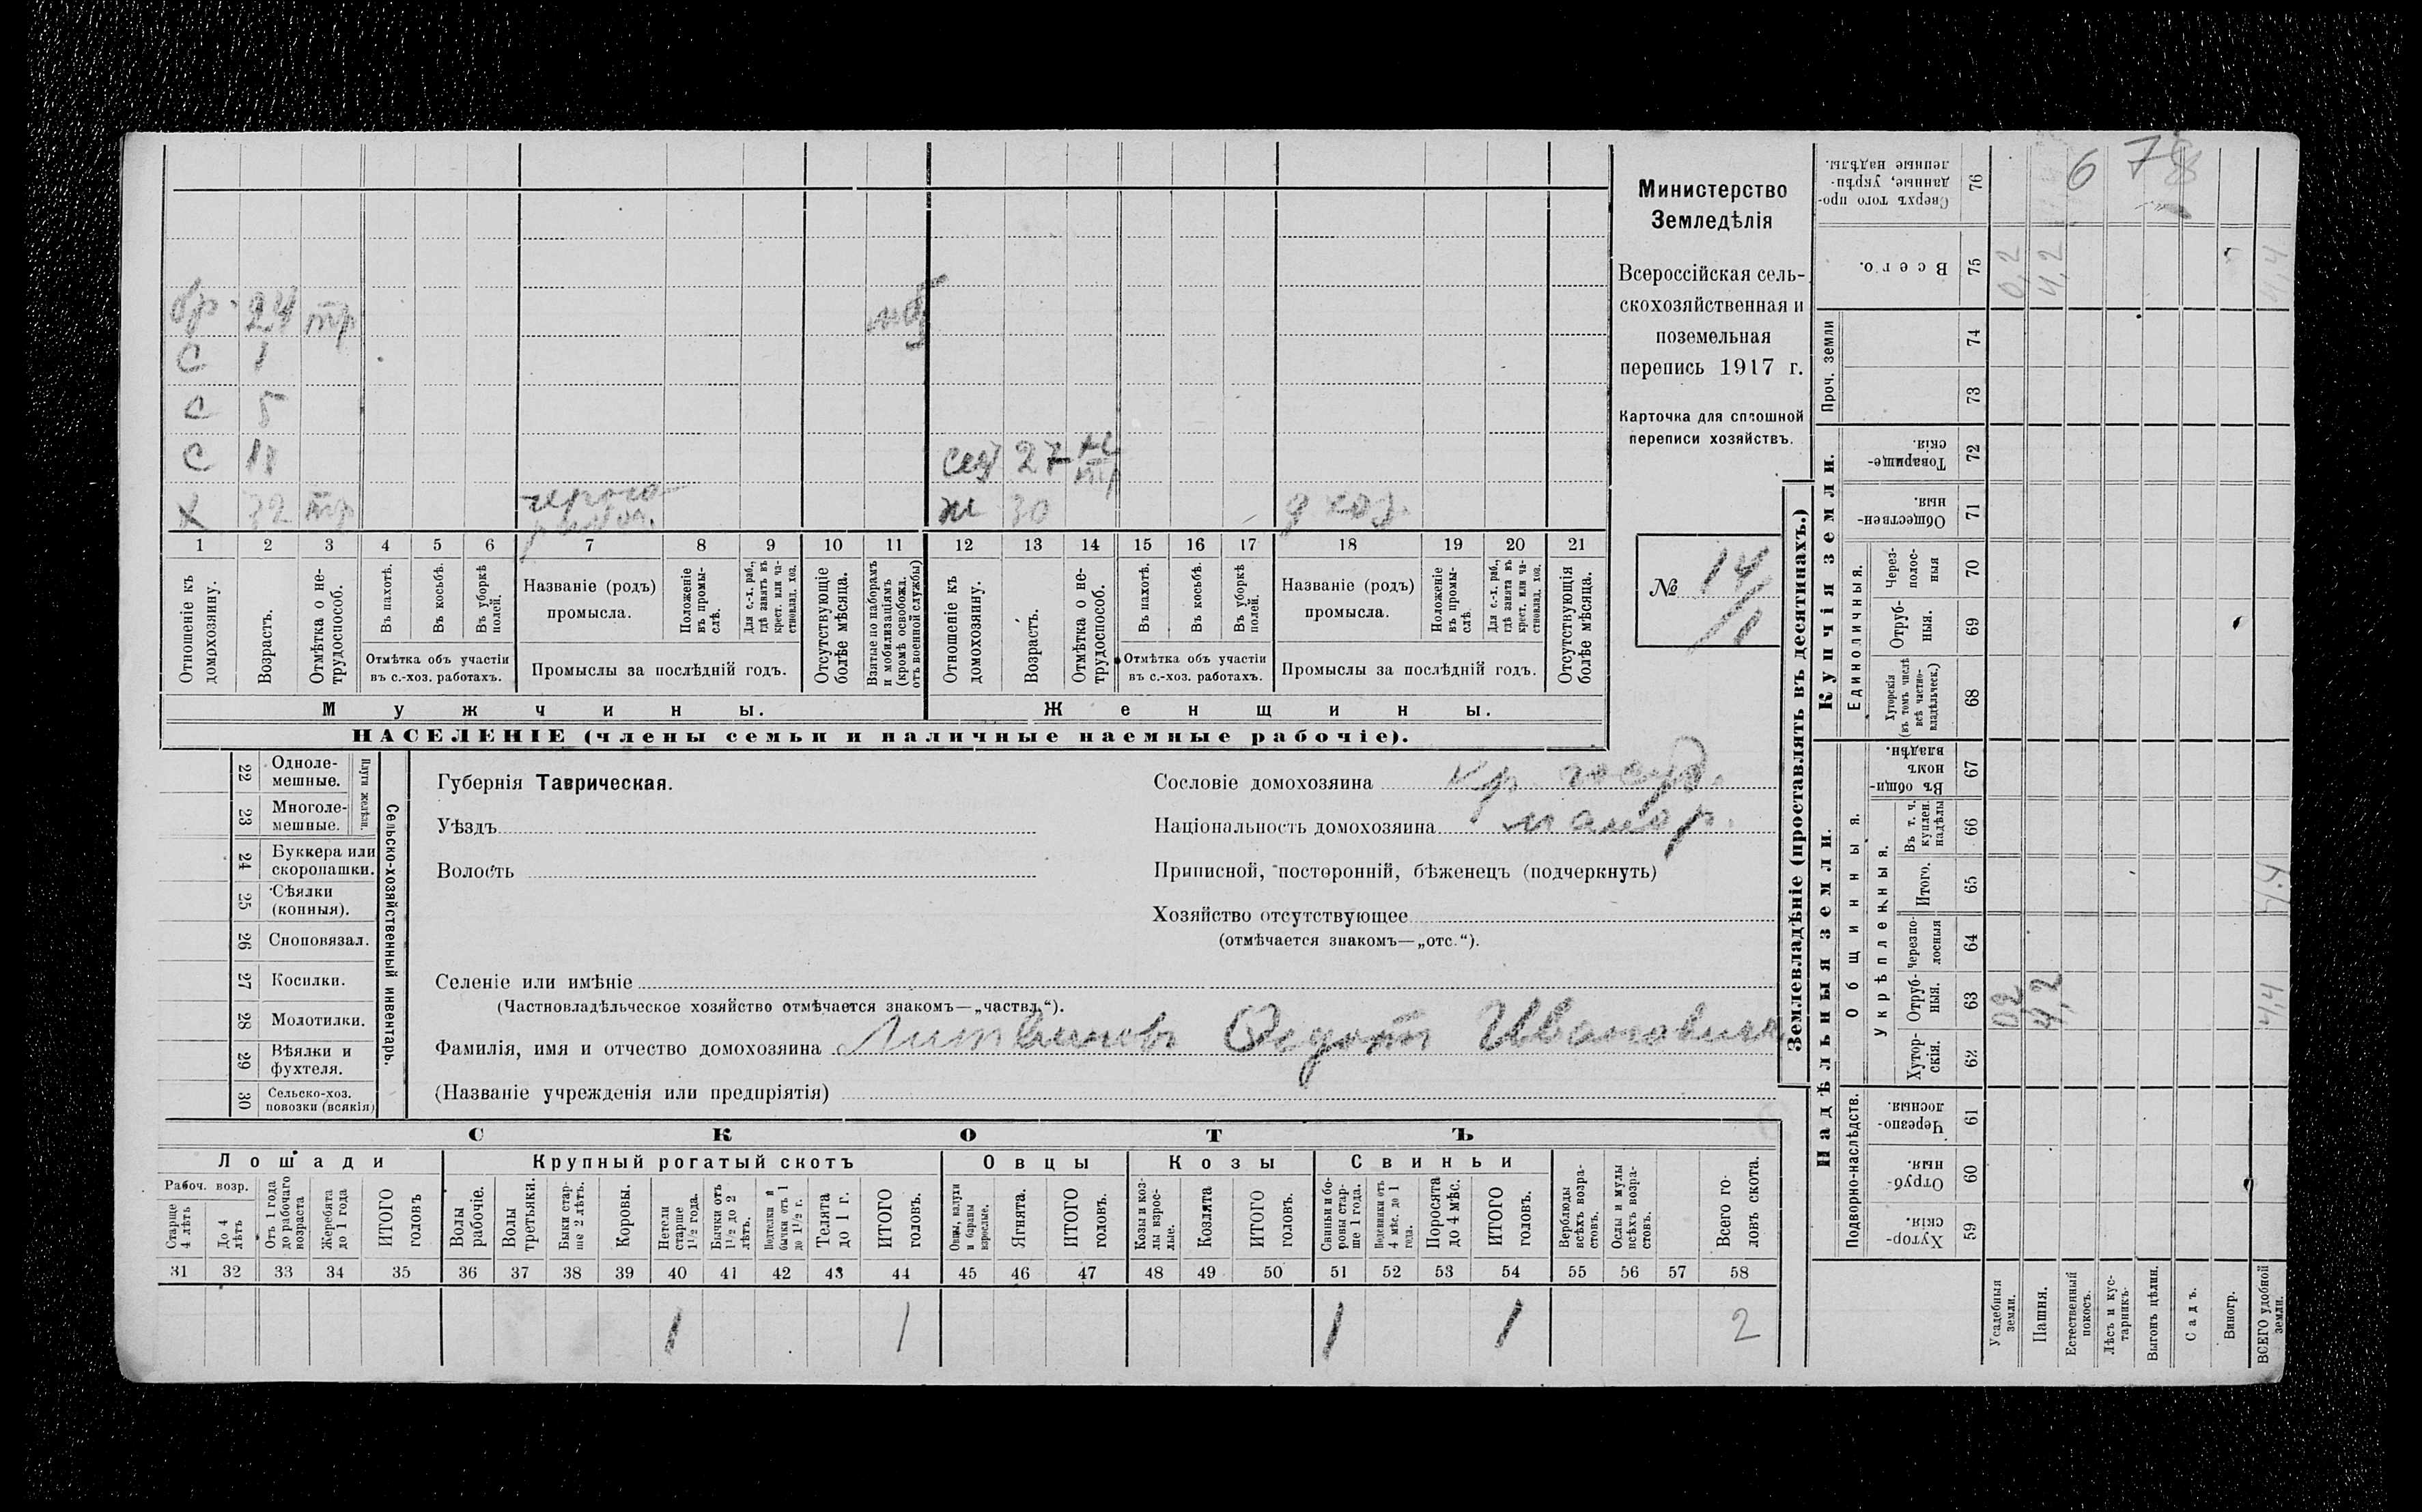 бр. 24 тр моб
С 1
С 5
С 11
Х 32 тр
сест 27 не тр
ж 30 д хоз.
1 2 3 4 5 6 7 8 9 10 11 12 13 14 15 16 17 18 19 20 21
Отношеніе къ домохозяину.
Возрастъ.
Отмѣтка о не-трудоспособ.
Въ пахотѣ.
Въ косьбѣ.
Въ уборкѣ полей.
Отмѣтка объ участіи въ с.-хоз. работахъ.
Названіе (родъ) промысла.
Положеніе въ промы-слѣ.
Для с.-х. раб., гдѣ занятъ въ крест. или ча-стновлад. хоз.
Промыслы за послѣдній годъ.
Отсутствующіе болѣе мѣсяца.
Взятые по наборамъ и мобилизаціямъ (кромѣ освобожд. отъ военной службы)
Отношеніе къ домохозяину.
Возрастъ.
Отмѣтка о не-трудоспособ.
Въ пахотѣ.
Въ косьбѣ.
Въ уборкѣ полей.
Отмѣтка объ участіи въ с.-хоз. работахъ.
Названіе (родъ) промысла.
Положеніе въ промы-слѣ.
Для с.-х. раб., гдѣ занята въ крест. или ча-стновлад. хоз.
Промыслы за послѣдній годъ.
Отсутствующія болѣе мѣсяца.
Мужчины. Женщины.
НАСЕЛЕНІЕ (члены семьи и наличные наемные рабочіе).
Министерство
Земледѣлія
Всероссійская сель-
скохозяйственная и
поземельная
перепись 1917 г.
Карточка для сплошной
переписи хозяйствъ.
№ 14
22 Одноле-мешные.
23 Многоле-мешные.
Плуги желѣзн.
24 Буккера или скоропашки.
25 Сѣялки (конныя).
26 Сноповязал.
27 Косилки.
28 Молотилки.
29 Вѣялки и фухтеля.
30 Сельско-хоз. повозки (всякія)
Сельско-хозяйственный инвентарь.
Губернія Таврическая.
Уѣздъ
Волость
Сословіе домохозяина кр. госуд.
Національность домохозяина малор.
Приписной, посторонній, бѣженецъ (подчеркнуть)
Хозяйство отсутствующее
(отмѣчается знакомъ—„отс.“).
Селеніе или имѣніе
(Частновладѣльческое хозяйство отмѣчается знакомъ—„частвл.“).
Фамилія, имя и отчество домохозяина Литвиновъ Федотъ Ивановичъ
(Названіе учрежденія или предпріятія)
СКОТЪ
Лошади Крупный рогатый скотъ Овцы Козы Свиньи
Рабоч. возр.
Старще 4 лѣтъ
До 4 лѣтъ
Отъ 1 года до рабочаго возраста
Жеребята до 1 года
ИТОГО головъ
Волы рабочіе.
Волы третьяки.
Быки стар-ше 2 лѣтъ.
Коровы.
Нетели старше 1½ года.
Бычки отъ 1½ до 2 лѣтъ.
Подтелки и бычки отъ 1 до 1½ г.
Телята до 1 г.
ИТОГО головъ.
Овцы, валухи и бараны взрослые.
Ягнята.
ИТОГО головъ.
Козы и коз-лы взрос-лые.
Козлята
ИТОГО головъ.
Свиньи и бо-ровы стар-ше 1 года.
Подсвинки отъ 4 мѣс. до 1 года.
Поросята до 4 мѣс.
ИТОГО головъ.
Верблюды всѣхъ возра-стовъ.
Ослы и мулы всѣхъ возра-стовъ.
Всего го-ловъ скота.
31 32 33 34 35 36 37 38 39 40 41 42 43 44 45 46 47 48 49 50 51 52 53 54 55 56 57 58
1 1 1 1 2
Землевладѣніе (проставлять въ десятинахъ.)
Надѣльныя земли. Купчія земли.
Проч. земли
Подворно-наслѣдств.
Общинныя.
Укрѣпленныя.
Единоличныя.
Хутор-скія. 59
Отруб-ныя. 60
Черезпо-лосныя. 61
Хутор-скія. 62
Отруб-ныя. 63
Черезпо-лосныя 64
Итого. 65
Въ т. ч. куплен. надѣлы 66
Въ общи-номъ владѣн. 67
Хуторскія (въ томъ числѣ всѣ частно-владѣльческ.) 68
Отруб-ныя. 69
Через-полос-ныя 70
Обществен-ныя 71
Товарище-скія. 72
73
74
Всего. 75
Сверхъ того про-данные, укрѣп-ленные надѣлы. 76
Усадебныя земли. 0,2 0,2
Пашня. 4,2 4,2
Естественный покосъ.
Лѣсъ и кус-тарникъ.
Выгонъ цѣлин.
Садъ.
Виногр.
ВСЕГО удобной земли. 4,4 4,4 4,4
6 7